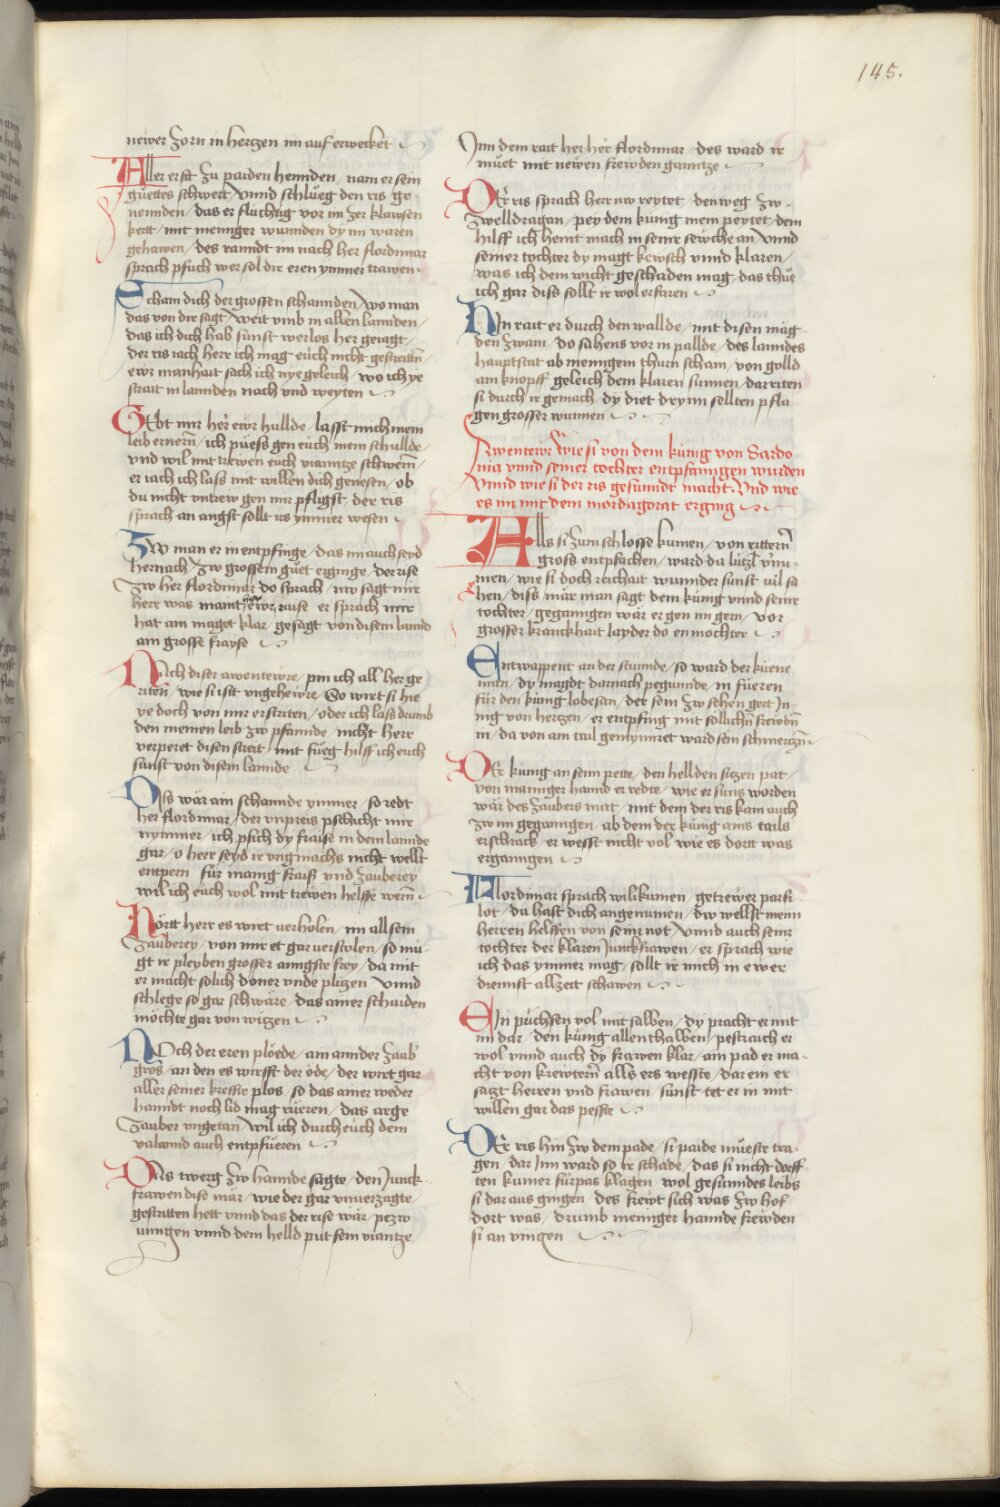 145.
newer zorn in hertzen im auf erwecket
Aller erst zu paiden hennden / nam er sein
guettes schwert / vnnd schlueg den ris ge-
nennden / das er fluchtig vor im zer klawsen
kert / mit meniger wunnden dy im waren
gehawen / des ranndt im nach her flordimar
sprach pfuch wer sol dir eren ymmer trawen
Scham dich der grossen schannden / wo man
das von dir sagt / weit vmb in allen lannden /
das ich dich hab sunst werlos her geiagt /
der ris iach herr ich mag euch nicht gestreitn
ewr manhait sach ich nye geleich / wo ich ye
strait in lannden nach vnd weyten
Gebt mir herr ewr hullde / lasst mich mein
leib ernern / ich puess gen euch mein schullde /
vnd wil mit trewen euch vianntze schwern /
er iach ich lass mit willen dich genesen / ob
du nicht vntrew gen mir pfligst / der ris
sprach an angst sollt irs ymmer wesen
Zw man er in entpfinge / das im auch seyd
hernach / zw grossem guet erginge / der rise
zw her flordimar do sprach / nw sagt mir
herr was maint ewr raise / er sprach mir
hat ain maget klar / gesagt von disem lannd
ain grosse frayse
Nach diser awentewre / pin ich all her ge
riten / wie si ist vngehewre / So wirt si hie
ye doch von mir erstriten / oder ich lass drumb
den meinen leib zw pfannde / nicht herr
verperet disen streit / mit fueg hilff ich euch
sunst von disem lannde
Das wär ain schannde ymmer / so redt
her flordimar / der vnpreis pschicht mir
nymmer / ich psich dy fraise in dem lannde
gar / o herr seyd ir vngmachs nicht wellt
entpern / fur manig fraiss vnd zauberey
wil ich euch wol mit trewen helffe wern
Hörtt herr es wirt verholen / im all sein
zauberey / von mir et gar verstolen / so mu-
gt ir pleyben grosser anngste frey / da mit
er macht solich doner vnde plitzen / vnnd
schlege so gar schwäre / das ainer schaiden
möchte gar von witzen
Noch der eren plöede / ain annder zaub
gros / an den es wirfft der öde / der wirt gar
aller seiner kreffte plos / so das ainer weder
hanndt noch lid mag rüeren / das arge
zauber vngetan / wil ich durch euch dem
valannd auch entpfüeren
Das twerg zw hannde sagte / den Junck-
frawen dise mär / wie der gar vnuerzagte /
gestritten hett vnnd das der rise wär / pezw
unngen vnnd dem helld put sein vianntze
Inn dem rait her her flordimar / des ward ir
muet mit newen frewden ganntze
Der ris sprach herr nw reytet / den weg zw
zwelldragan / pey dem kunig mein peytet / dem
hilff ich heint mach in seine sewche an / vnnd
seiner tochter dy magt kewsch vnnd klaren /
was ich dem wicht geschaden mag / das thue
ich gar diss sollt ir wol erfaren
Hin rait er durch den wallde / mit disen mäg
den zwain / do sahens vor in pallde / des lanndes
hauptstat ab menigem thurn schain / von golld
ain knopff geleich dem klaren sunnen / dar riten
si durch ir gemach / dy diet dryinn sellten pfla-
gen grosser wunnen
Awentewr wie si von dem kunig von Sardo
nia vnnd seiner tochter entpfanngen wurden
vnnd wie si der ris gesunndt macht. Vnd wie
es im mit dem mordagorat erging
Alls si zum schlosse kumen / von rittern
gross entpfachen / ward da lützl v'nu-
men / wie si doch reichait wunnder sunst vil sa
hen / diss mär man sagt dem kunig vnnd seine
tochter / geganngen wär er gen im gern / vor
grosser kranckhait layder do en mochter
Entwappent an der stunnde / so ward der küene
man / dy magdt darnach pegunnde / in füeren
für den kunig lobesan / der sein zw sehen gert In-
nig von hertzen / er entpfing mit sollichn frewdn
in / da von am tail geminnret ward sein schmertzn
Der kunig an seim pette / den hellden sitzen pat /
von manniger hannd er redte / wie er suns worden
wär des zaubers mat / mit dem der ris kam auch
zw im geganngen / ab dem der kunig ains tails
erschrack / er wesst nicht vol wie es dortt was
erganngen
Flordimar sprach wilikumen / getrewer parsi
lot / du hast dich angenumen / dw wellst meim
herren helffen von seinr not / vnnd auch seinr
tochter der klaren Junckfrawen / er sprach wie
ich das ymmer mag / sollt ir mich in ewer
dienst allzeit schawen
Ein püchsen vol mit salben / dy pracht er mit
im dar / den kunig allenthalben / pestraich er
wol vnnd auch dy frawen klar / ain pad er ma-
cht von krewtern alls ers wesste / dar ein er
satzt herren vnd frawen / sunst tet er in mit
willen gar das peste
Der ris hin zw dem pade / si paide mueste tra-
gen / dar Inn ward so ir schade / das si nicht dorff-
ten kumer fürpas klagen / wol gesundes leibs
si dar aus gingen / des frewt sich was zw hof
dort was / drumb meniger hannde frewden
si an vingen